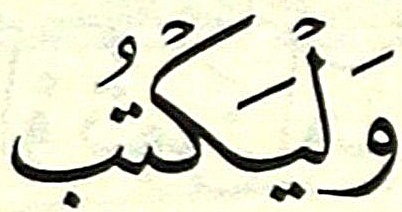 وَلْيَكْتُب